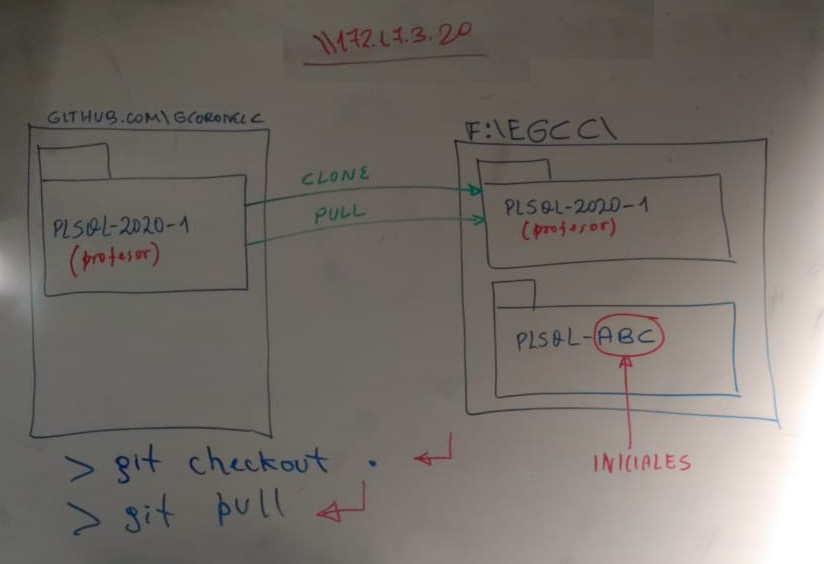 \\172.17.3.20
GITHUB.COM\GCORONELC
PLSQL-2020-1
(profesor)
CLONE
PULL
F:\EGCC\
PLSQL-2020-1
(profesor)
PLSQL-ABC
INICIALES
> git checkout .
> git pull